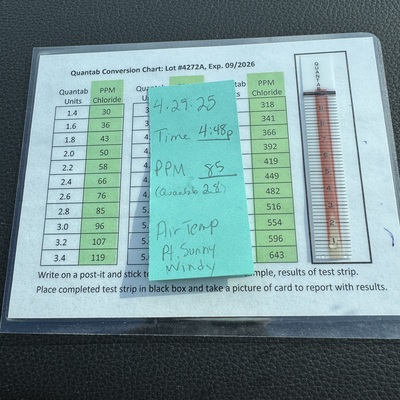 Quantab Conversion Chart: Lot #4272A, Exp. 09/2026
Quantab Units PPM Chloride
1.4 30
1.6 36
1.8 43
2.0 50
2.2 58
2.4 66
2.6 76
2.8 85
3.0 96
3.2 107
3.4 119
4.29.25
Time 4:48p
PPM 85
(Quantab 2.8)
Air Temp
Pt. Sunny
Windy
PPM
Chloride
318
341
366
392
419
449
482
516
554
596
643
QUANTAB
Write on a post-it and stick t
mple, results of test strip.
Place completed test strip in black box and take a picture of card to report with results.